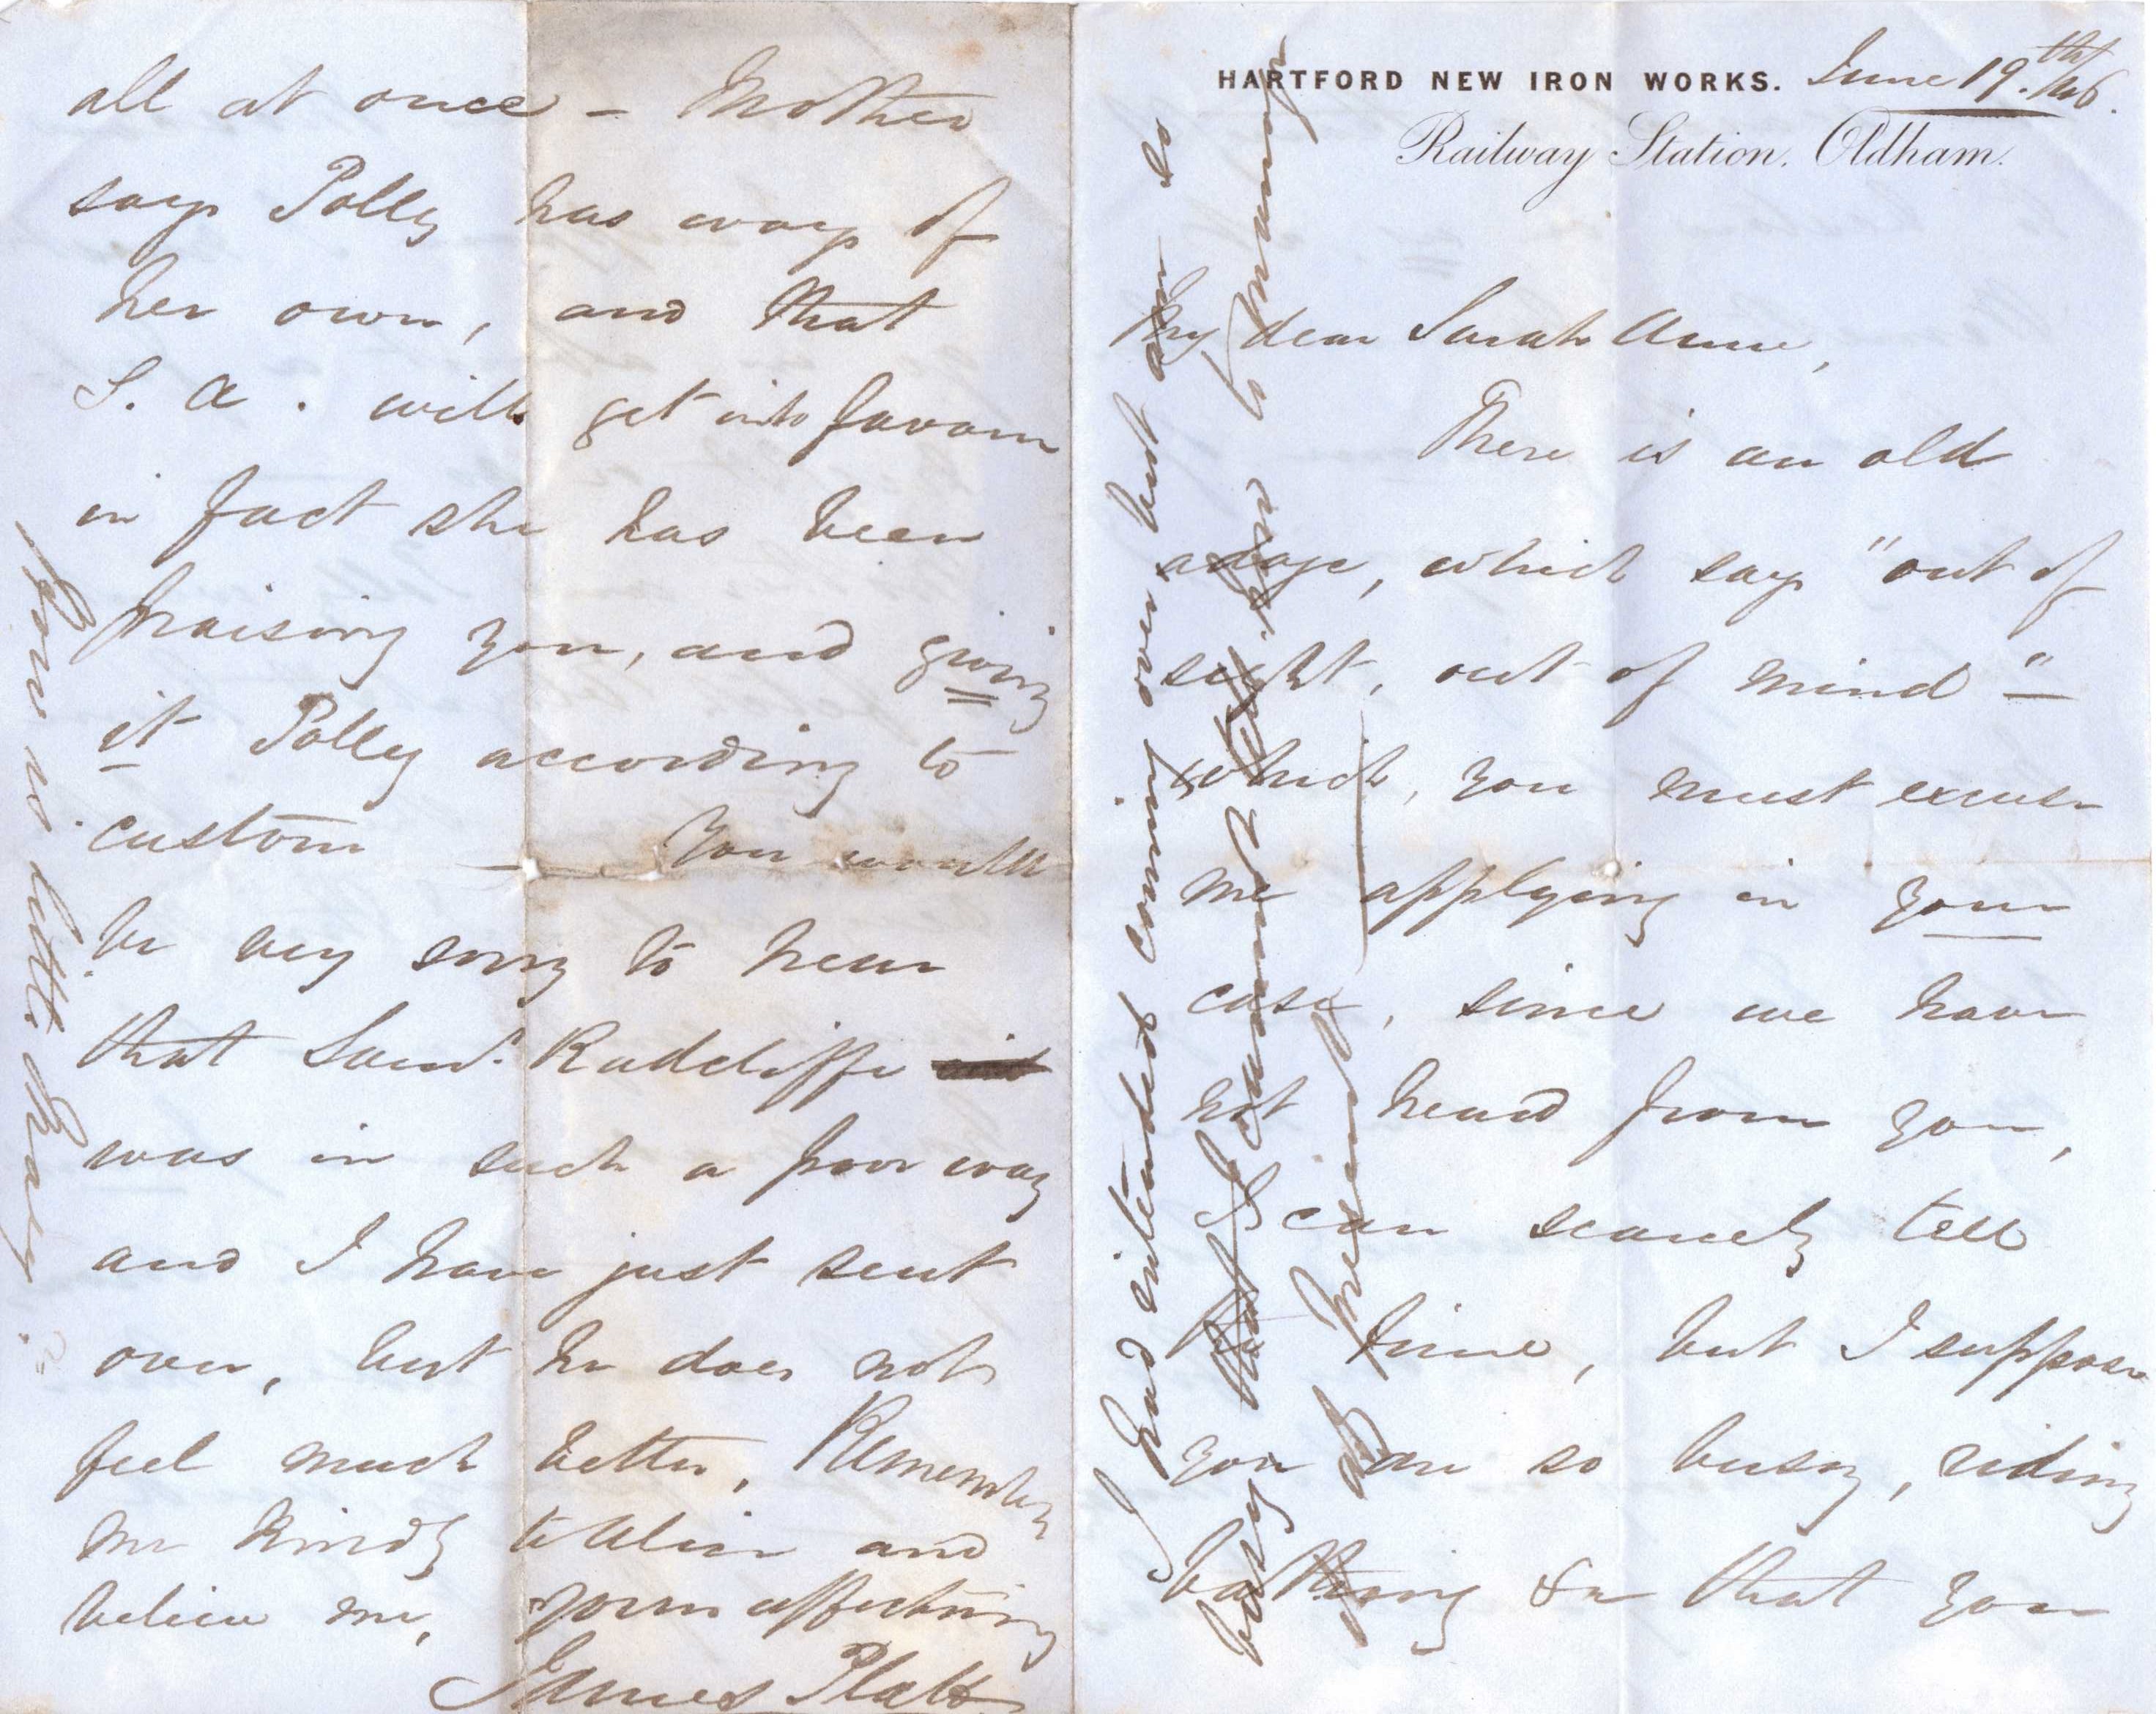 HARTFORD NEW IRON WORKS. June 19th
Railway Station. Oldham.
My dear Sarah Anne,
There is an old
adage, which says "out of
sight, out of mind" —
which, you must excuse
me applying in your
case, since we have
not heard from you,
I can scarcely tell
the time, but I suppose
you are so busy, riding
bathing &c that you
I had intended coming over but am so
busy that I cannot tell how to manage
at present
all at once — Mother
says Polly has ways of
her own, and that
S. A. will get into favour
in fact she has been
praising you, and giving
it Polly according to
custom — You would
be very sorry to hear
that Saml. Radcliffe
was in such a poor way
and I have just sent
over, but he does not
feel much better, Remember
me kindly to Alice and
believe me, yours affectionly
James Platt